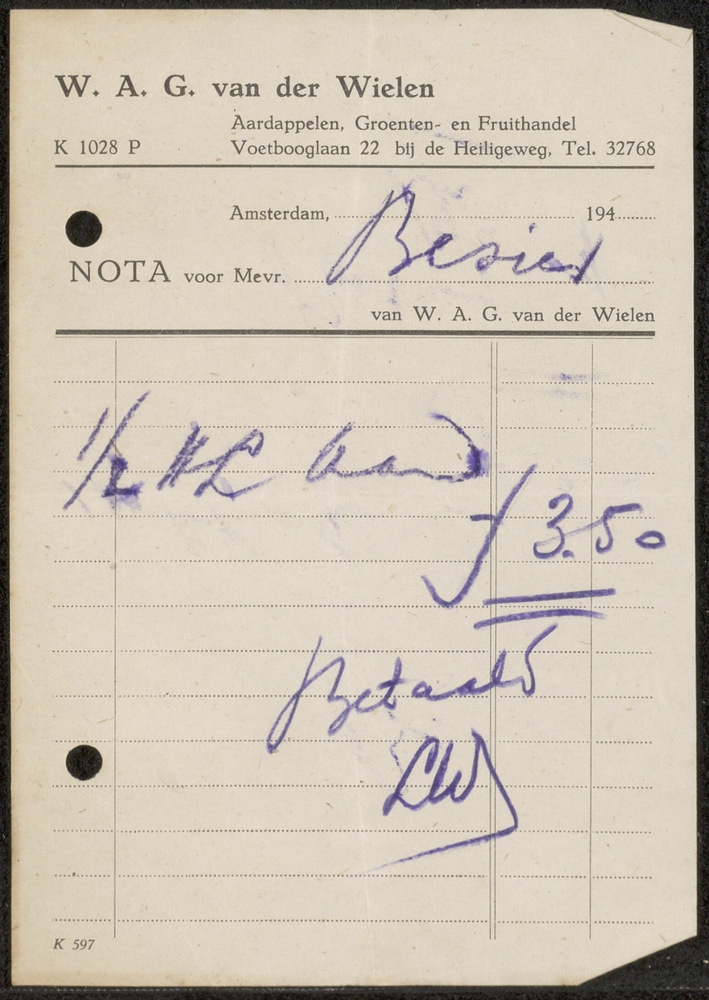 W. A. G. van der Wielen
Aardappelen, Groenten- en Fruithandel
K 1028 P Voetbooglaan 22 bij de Heiligeweg, Tel. 32768
Amsterdam, 194
NOTA voor Mevr. Besier
van W. A. G. van der Wielen
1/2 HL aard
f 3.50
Betaald
K 597